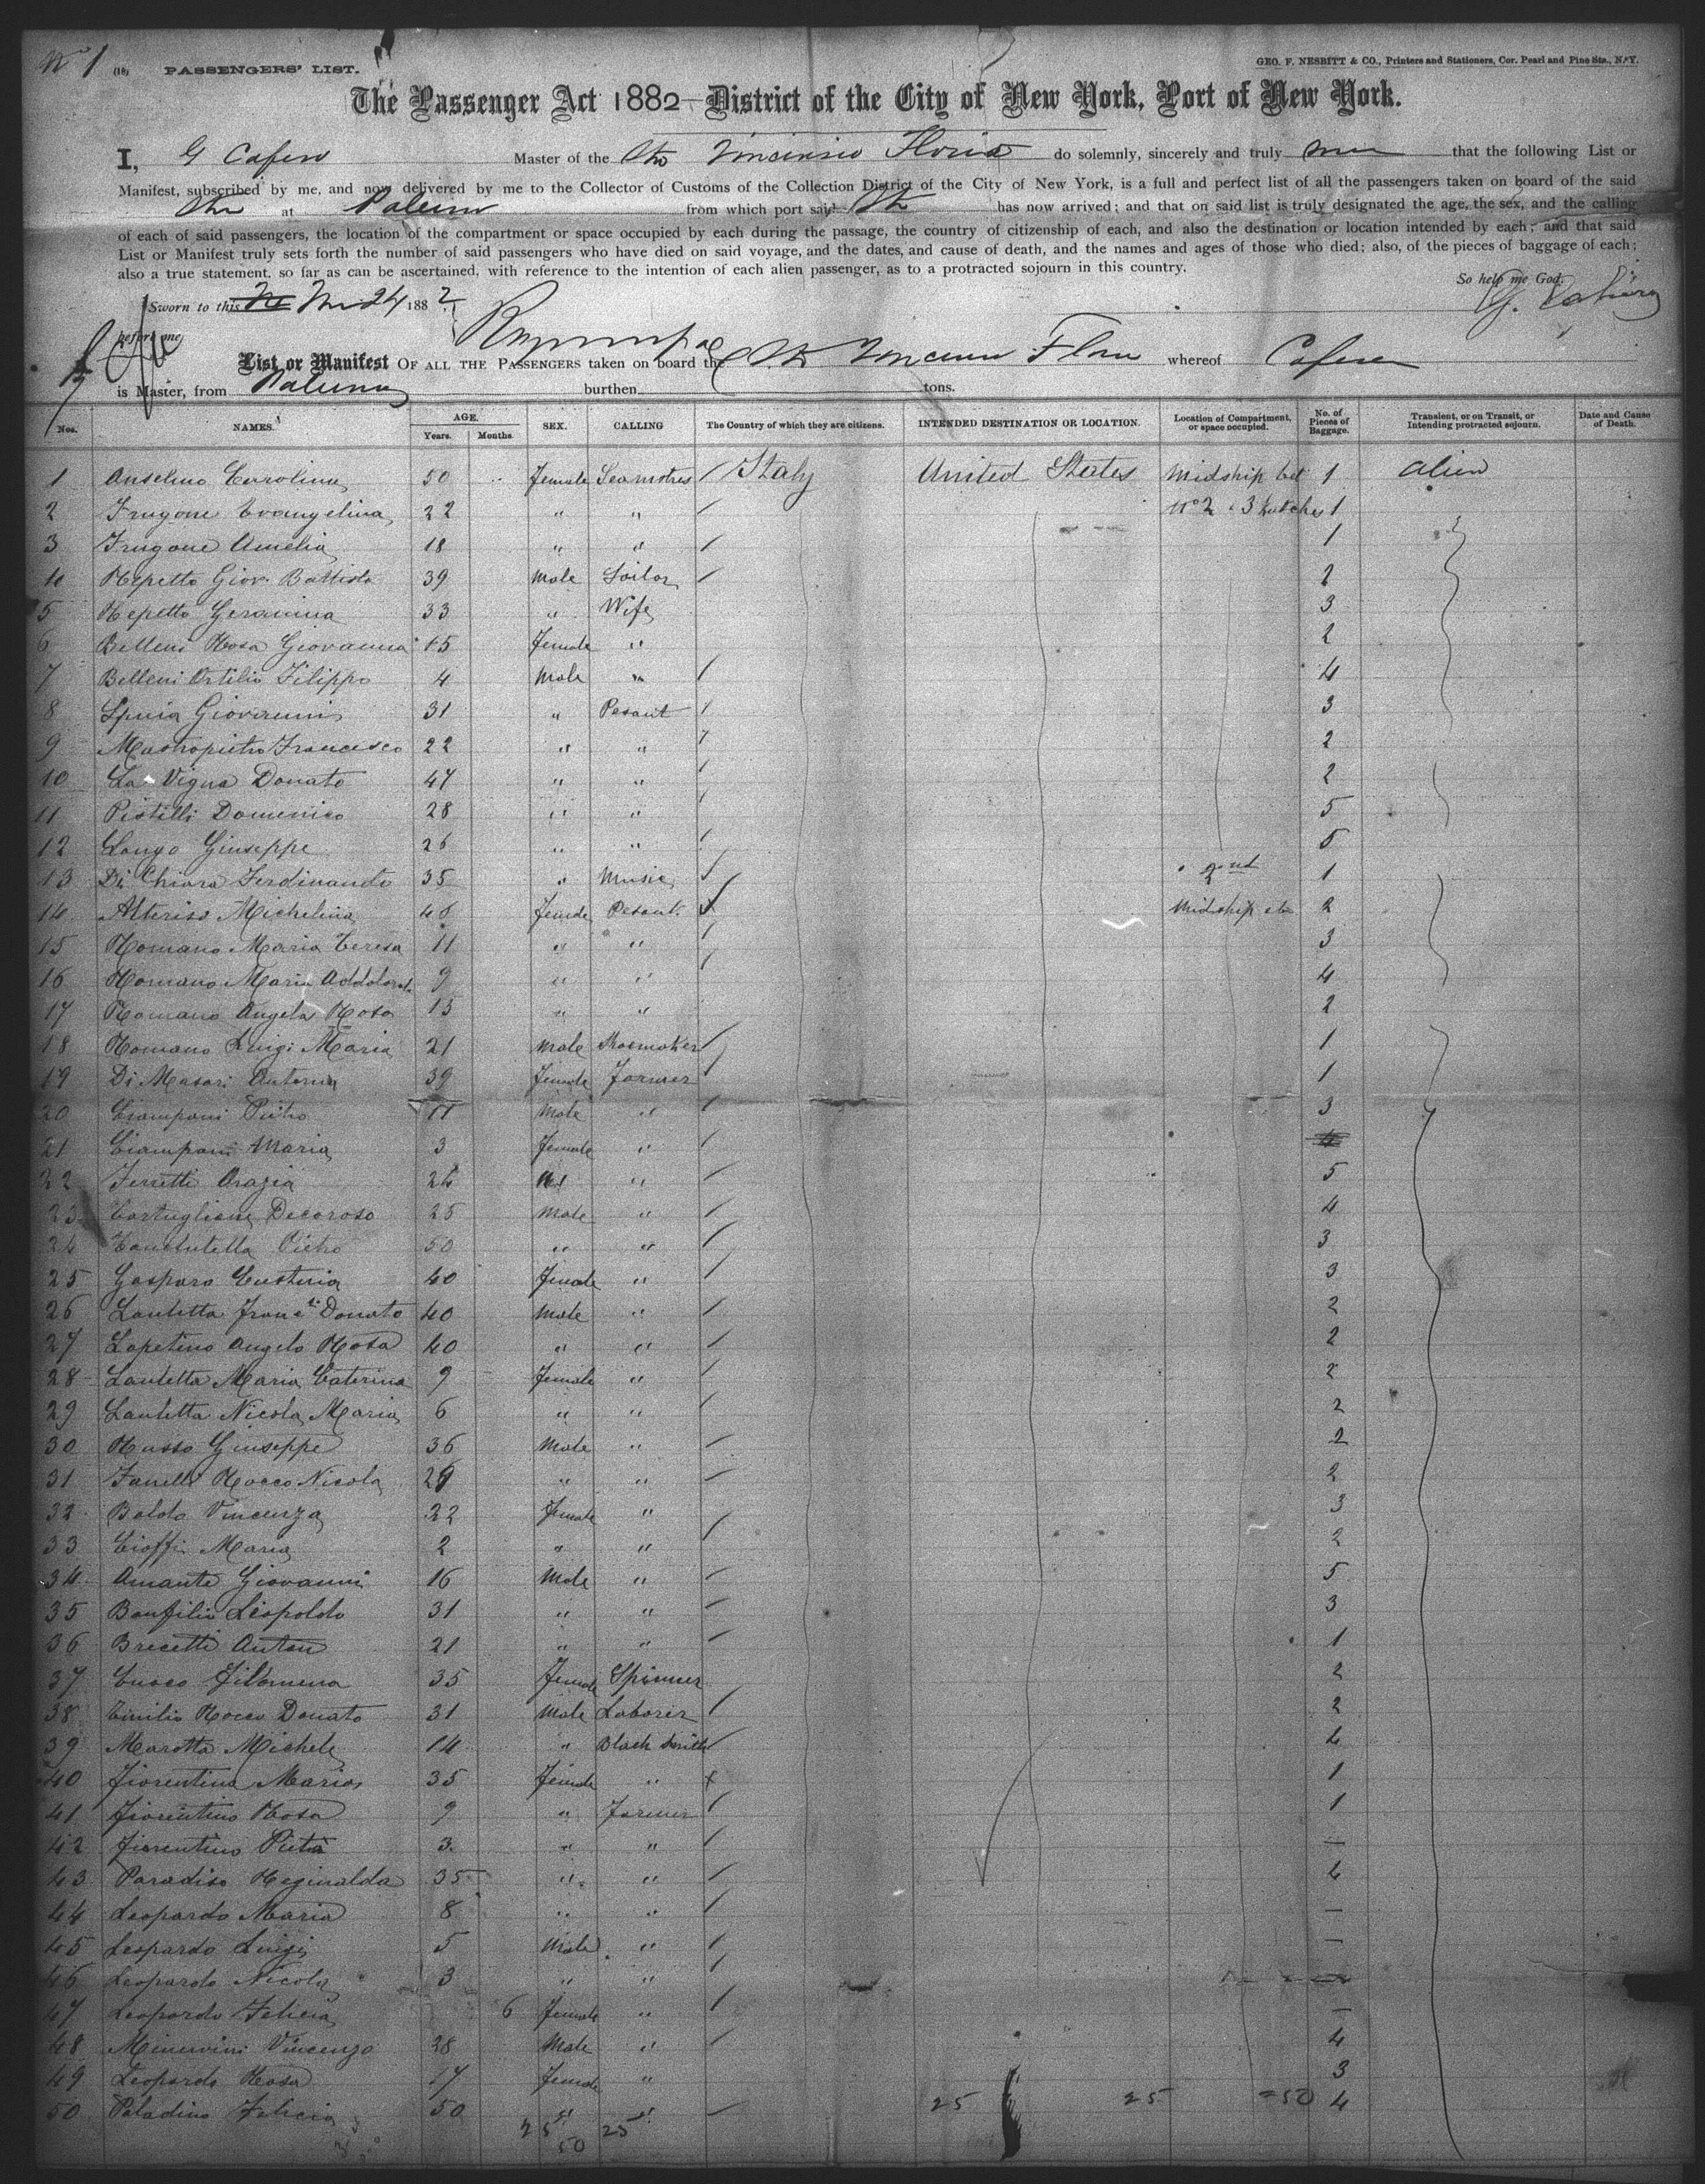 No 1
(18) PASSENGERS' LIST.
GEO. F. NESBITT & CO., Printers and Stationers, Cor. Pearl and Pine Sts., N.Y.
The Passenger Act 1882 - District of the City of New York, Port of New York.
I, G Cafiero Master of the Str Vincenzo Florio do solemnly, sincerely and truly that the following List or
Manifest, subscribed by me, and now delivered by me to the Collector of Customs of the Collection District of the City of New York, is a full and perfect list of all the passengers taken on board of the said
Str at Palermo from which port said Str has now arrived; and that on said list is truly designated the age, the sex, and the calling
of each of said passengers, the location of the compartment or space occupied by each during the passage, the country of citizenship of each, and also the destination or location intended by each; and that said
List or Manifest truly sets forth the number of said passengers who have died on said voyage, and the dates, and cause of death, and the names and ages of those who died; also, of the pieces of baggage of each;
also a true statement, so far as can be ascertained, with reference to the intention of each alien passenger, as to a protracted sojourn in this country.
So help me God.
G. Cafiero
Sworn to this 24 1882
before me
List or Manifest OF ALL THE PASSENGERS taken on board the Str Vincenzo Florio whereof Cafiero
is Master, from Palermo burthen tons.
Nos. NAMES. AGE. Years. Months. SEX. CALLING The Country of which they are citizens. INTENDED DESTINATION OR LOCATION. Location of Compartment, or space occupied. No. of Pieces of Baggage. Transient, or on Transit, or Intending protracted sojourn. Date and Cause of Death.
1 Anselmo Carolina 50 Female Seamstres Italy United States Midship bet 1 alien
2 Frugone Evangelina 22 " " No 2 & 3 hatches 1
3 Frugone Amelia 18 " " 1
4 Repetto Giov. Battista 39 Male Sailor 2
5 Repetto Geronima 33 " Wife 3
6 Belleni Rosa Giovanna 15 Female " 2
7 Belleni Ortilio Filippo 4 Male " 4
8 Spuia Giovanni 31 " Pesant 3
9 Mastropietro Francesco 22 " " 2
10 La Vigna Donato 47 " " 2
11 Pistilli Domenico 28 " " 5
12 Longo Giuseppe 26 " " 5
13 Di Chiara Ferdinando 35 " Music 2nd 1
14 Alteriso Michelina 48 Female Pesant Midship etc 2
15 Romano Maria Teresa 11 " " 3
16 Romano Maria Addolorata 9 " " 4
17 Romano Angela Rosa 15 " " 2
18 Romano Luigi Maria 21 Male Shoemaker 1
19 Di Masari Antonia 39 Female Farmer 1
20 Ciampani Pietro 11 Male " 3
21 Ciampani Maria 3 Female " 4
22 Ferretti Orazia 24 " 5
23 Cortuglione Decoroso 25 Male " 4
24 Pietro 50 " " 3
25 Gasparo 40 Female " 3
26 Lauletta Franc Donato 40 Male " 2
27 Lopetino Angelo Rosa 40 " " 2
28 Lauletta Maria Caterina 9 Female " 2
29 Lauletta Nicola Maria 6 " " 2
30 Russo Giuseppe 36 Male " 2
31 Fanelli Rocco Nicola 29 " " 2
32 Baldo Vincenza 22 Female " 3
33 Cioffi Maria 2 " " 2
34 Amante Giovanni 16 Male " 5
35 Bonfilio Leopoldo 31 " " 3
36 Brecetti Anton 21 " " 1
37 Cuoco Filomena 35 Female Spinner 2
38 Cirilio Rocco Donato 31 Male Laborer 2
39 Marotta Michele 14 " Black Smith 4
40 Fiorentino Maria 35 Female " 1
41 Fiorentino Rosa 9 " Farmer 1
42 Fiorentino Pietà 3 " " —
43 Paradiso Reginalda 35 " " 4
44 Leopardo Maria 8 " " —
45 Leopardo Luigi 5 Male " —
46 Leopardo Nicola 3 " " —
47 Leopardo Felicia 6 Female " —
48 Minervini Vincenzo 28 Male " 4
49 Leopardo Rosa 17 Female " 3
50 Paladino Felicia 50 " " 25 25 =50 4
25 25
50